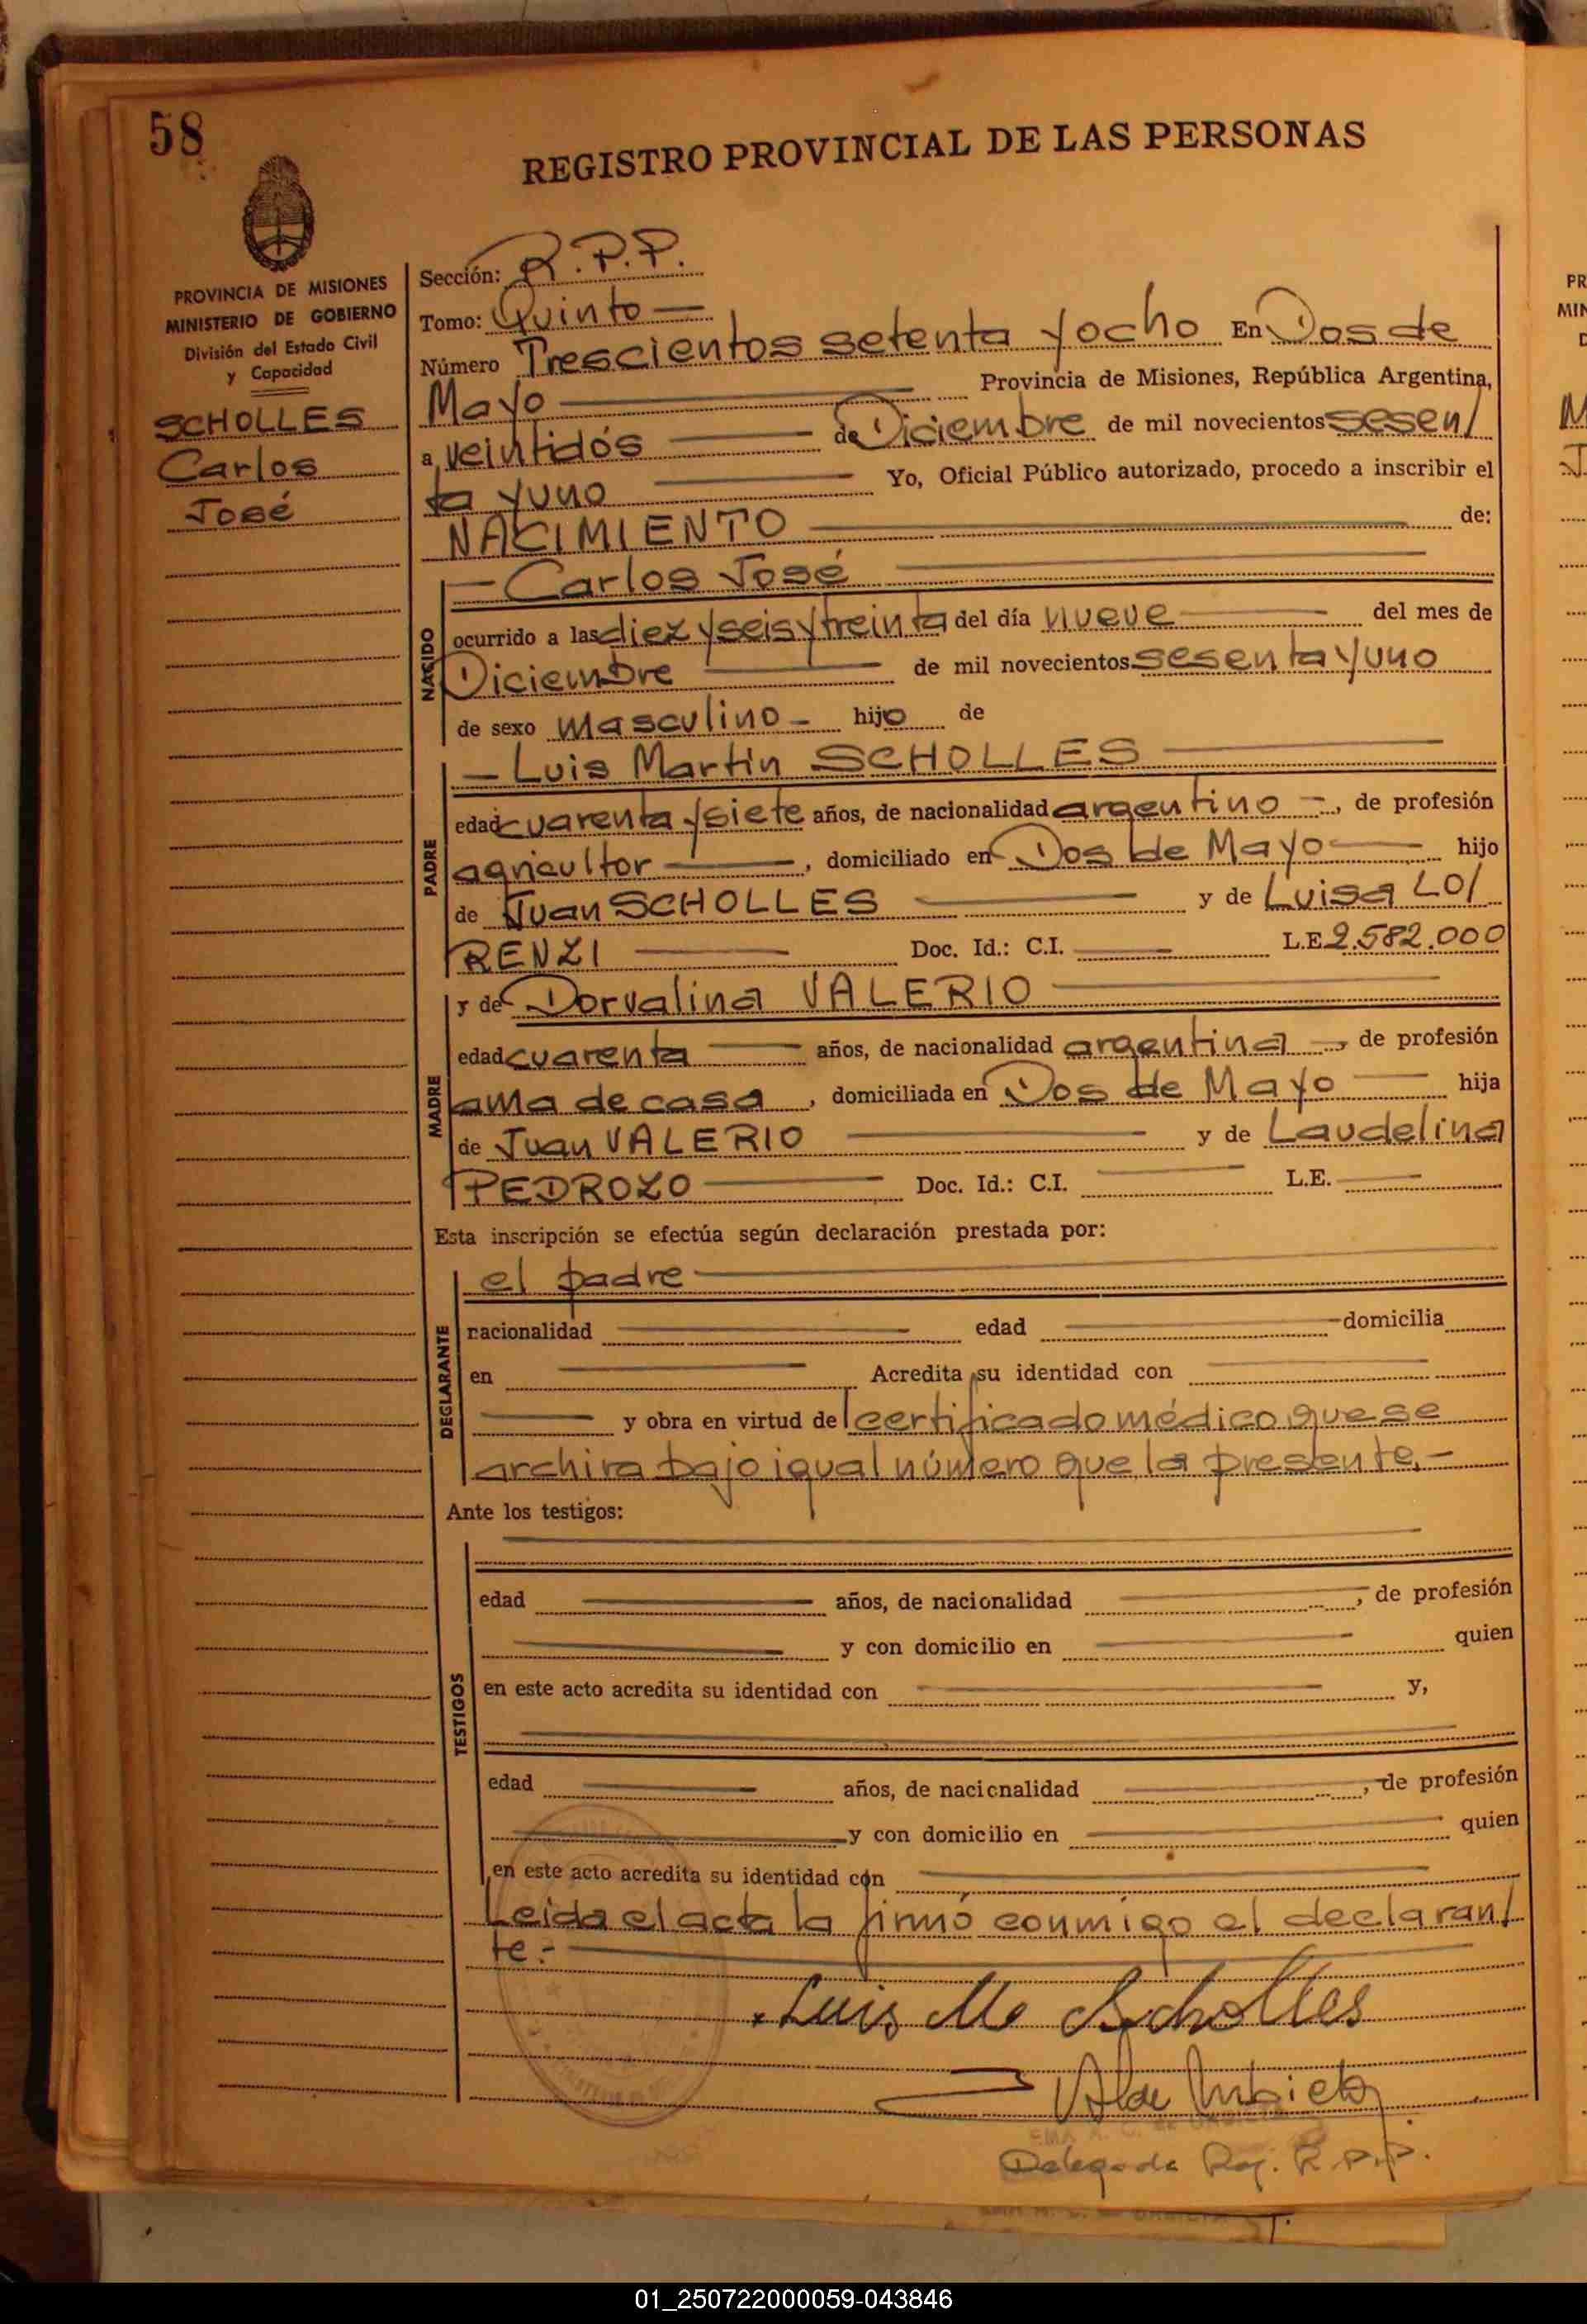 58
REGISTRO PROVINCIAL DE LAS PERSONAS
PROVINCIA DE MISIONES
MINISTERIO DE GOBIERNO
División del Estado Civil
y Capacidad
SCHOLLES
Carlos
José
Sección: R.P.P.
Tomo: Quinto
Número Trescientos setenta y ocho En Dos de
Mayo Provincia de Misiones, República Argentina,
a veintidós de Diciembre de mil novecientos sesen/
ta y uno Yo, Oficial Público autorizado, procedo a inscribir el
NACIMIENTO de:
NACIDO
— Carlos José
ocurrido a las diez y seis y treinta del día nueve del mes de
Diciembre de mil novecientos sesenta y uno
de sexo masculino — hijo de
PADRE
— Luis Martin SCHOLLES
edad cuarenta y siete años, de nacionalidad argentino —, de profesión
agricultor, domiciliado en Dos de Mayo hijo
de Juan SCHOLLES y de Luisa LO/
RENZI Doc. Id.: C.I. L.E. 2.582.000
MADRE
y de Dorvalina VALERIO
edad cuarenta años, de nacionalidad argentina, de profesión
ama de casa, domiciliada en Dos de Mayo hija
de Juan VALERIO y de Laudelina
PEDROZO Doc. Id.: C.I. L.E.
Esta inscripción se efectúa según declaración prestada por:
DECLARANTE
el padre
nacionalidad edad domicilia
en Acredita su identidad con
y obra en virtud del certificado médico que se
archiva bajo igual número que la presente.—
Ante los testigos:
TESTIGOS
edad años, de nacionalidad, de profesión
y con domicilio en quien
en este acto acredita su identidad con y,
edad años, de nacionalidad, de profesión
y con domicilio en quien
en este acto acredita su identidad con
Leida el acta la firmó conmigo el declaran/
te.-
Luis M. Scholles
de Urbieta
Delegada R.P.P.
PR
MIN
01_250722000059-043846